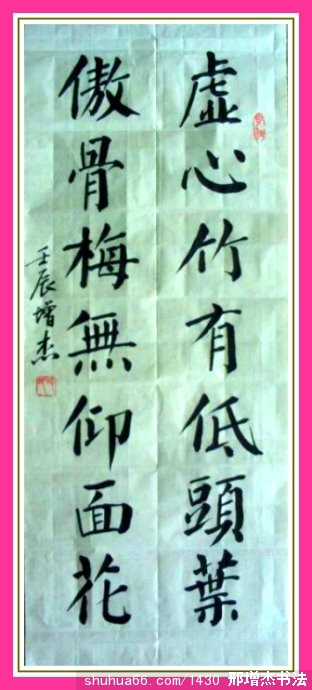 虛心竹有低頭葉
傲骨梅無仰面花
壬辰增杰
shuhua66.com/1430 邢增杰书法